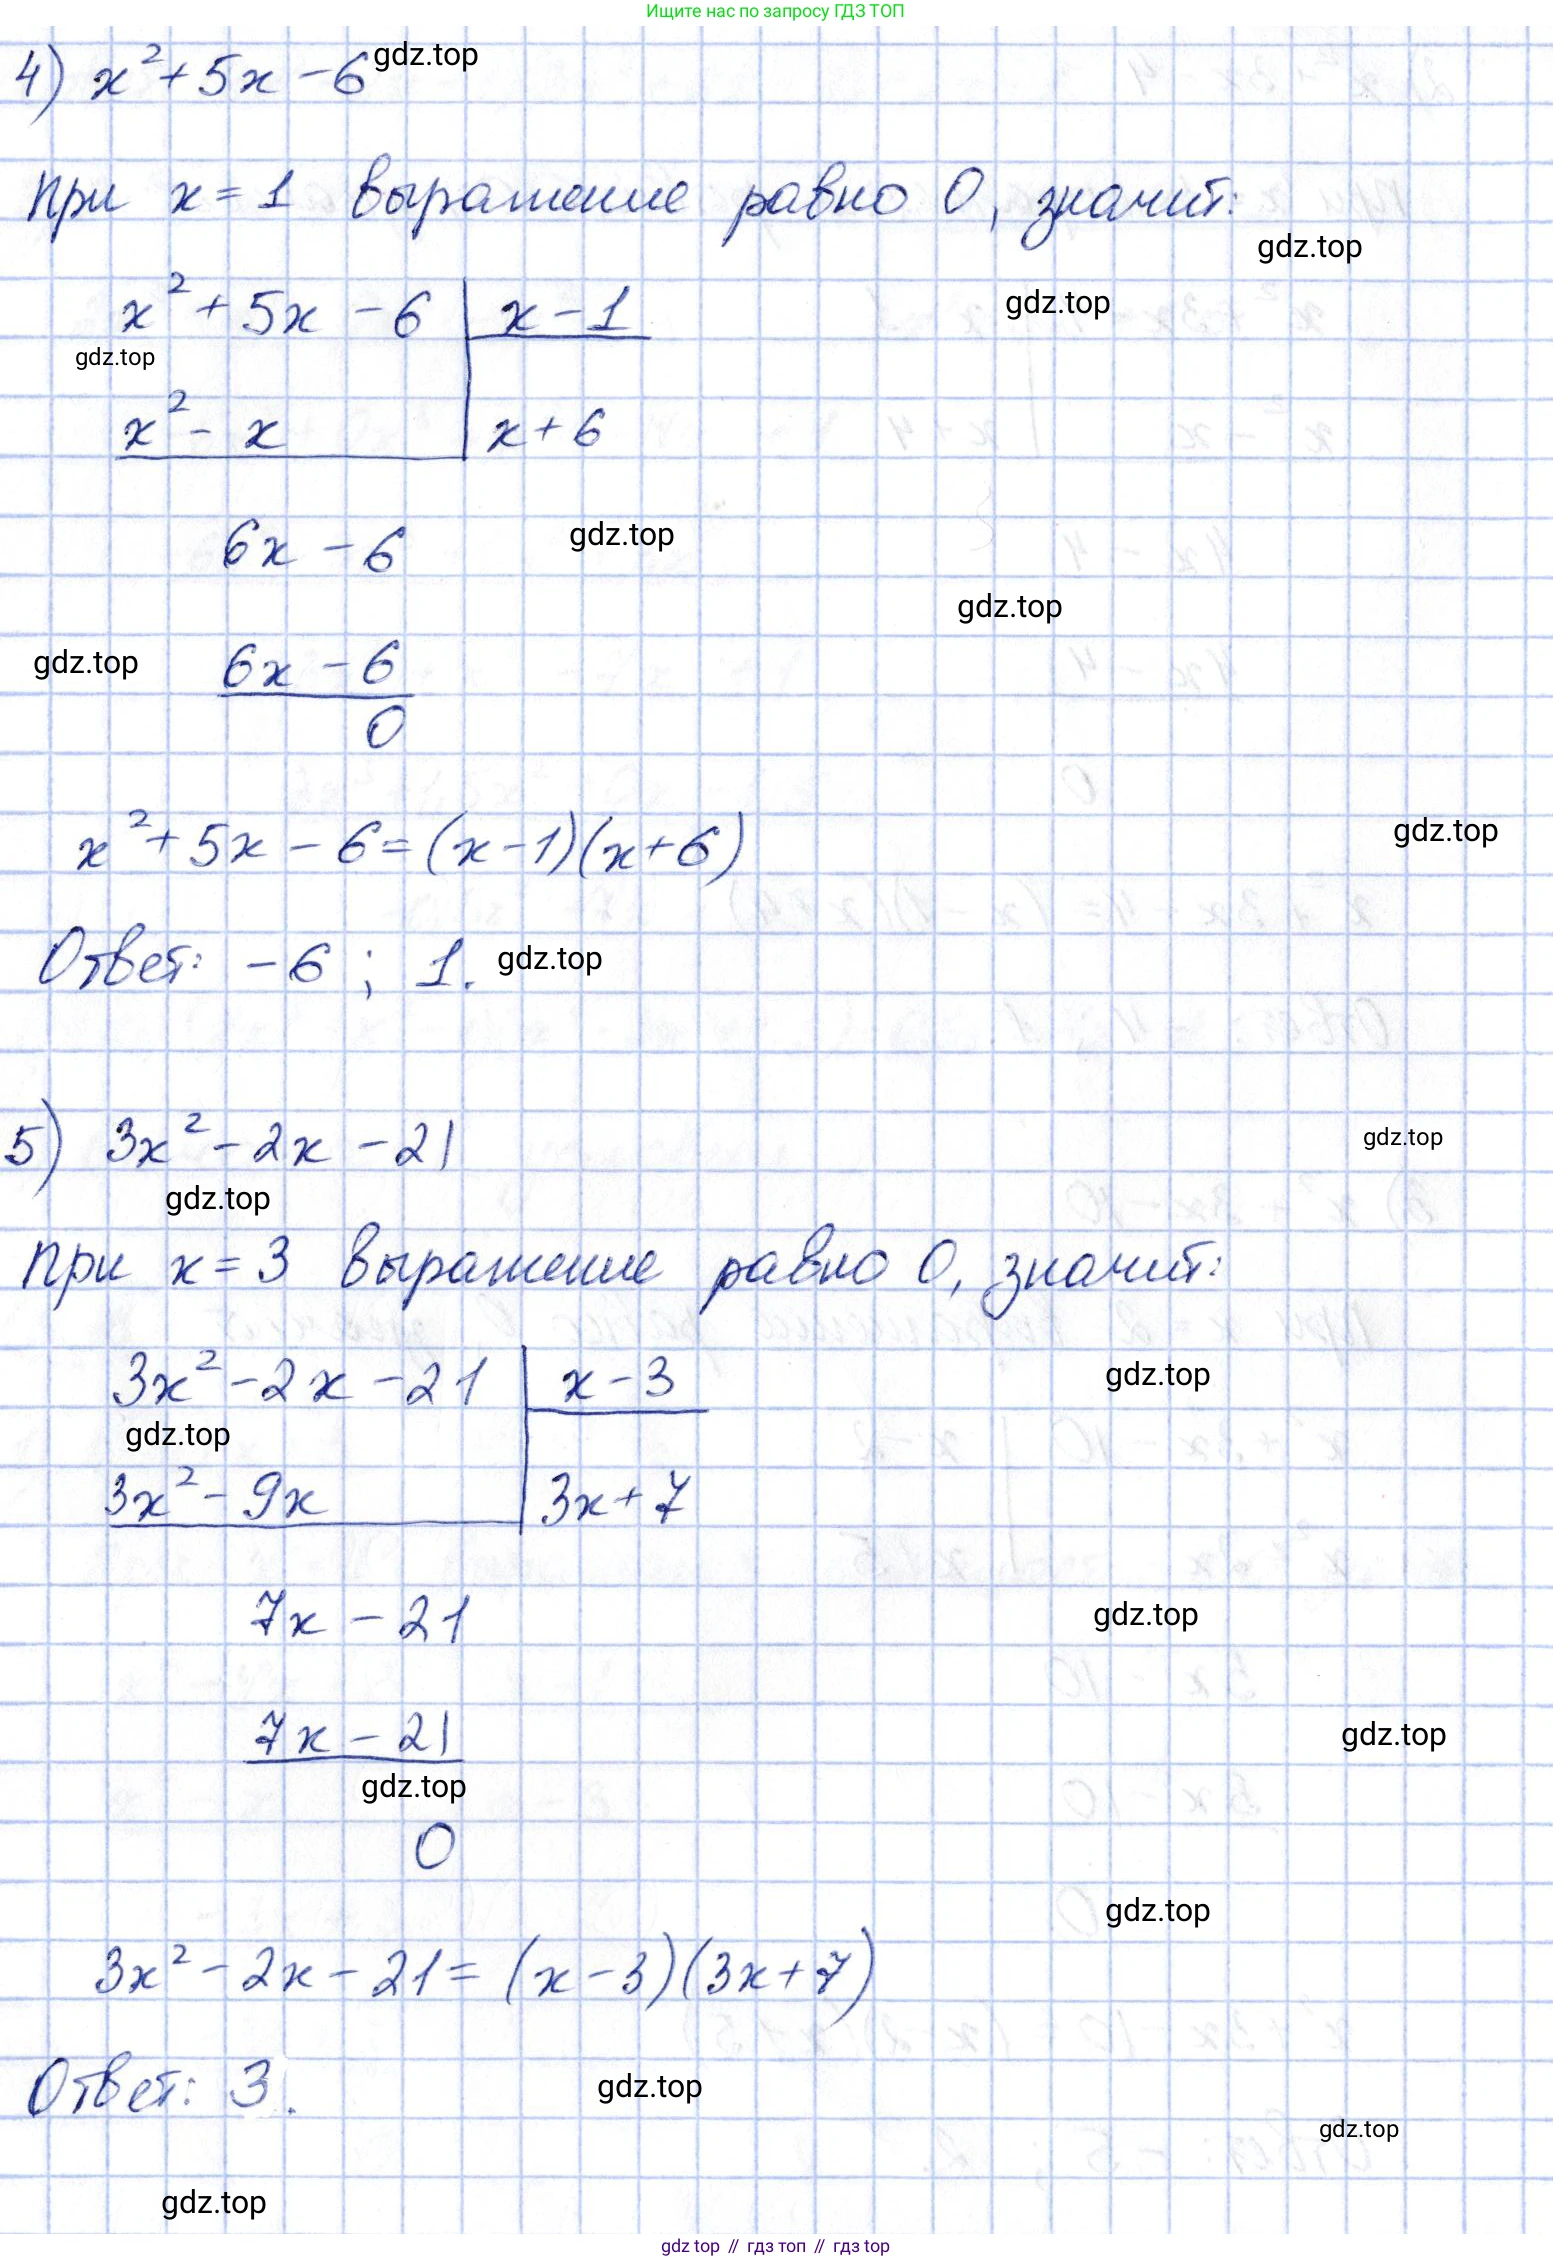 Ищите нас по запросу ГДЗ ТОП
4) x² + 5x - 6 gdz.top
При x = 1 выражение равно 0, значит:
gdz.top
x² + 5x - 6 | x - 1
gdz.top
gdz.top
x² - x | x + 6
6x - 6
gdz.top
gdz.top
gdz.top
6x - 6
0
gdz.top
x² + 5x - 6 = (x - 1)(x + 6)
Ответ: -6 ; 1. gdz.top
5) 3x² - 2x - 21
gdz.top
gdz.top
При x = 3 выражение равно 0, значит:
3x² - 2x - 21 | x - 3
gdz.top
gdz.top
3x² - 9x | 3x + 7
7x - 21
gdz.top
7x - 21
gdz.top
gdz.top
0
gdz.top
3x² - 2x - 21 = (x - 3)(3x + 7)
Ответ: 3.
gdz.top
gdz.top
gdz.top
gdz top // гдз топ // гдз top